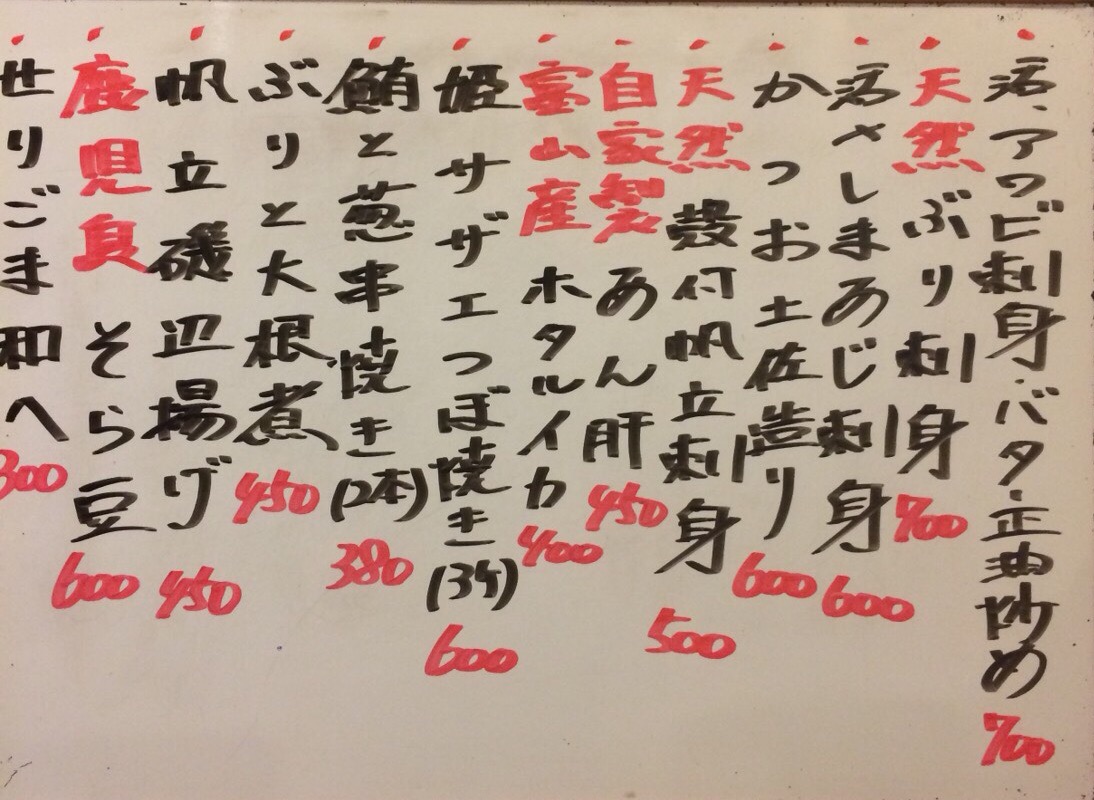 活、アワビ刺身・バタ正油炒め 700
天然ぶり刺身 700
活〆しまあじ刺身 600
かつお土佐造り 600
天然殻付帆立刺身 500
自家製あん肝 450
富山産ホタルイカ 400
姫サザエつぼ焼き(3ケ) 600
鮪と葱串焼き(2本) 380
ぶりと大根煮 450
帆立磯辺揚げ 450
鹿児島そら豆 600
せりごま和へ 300